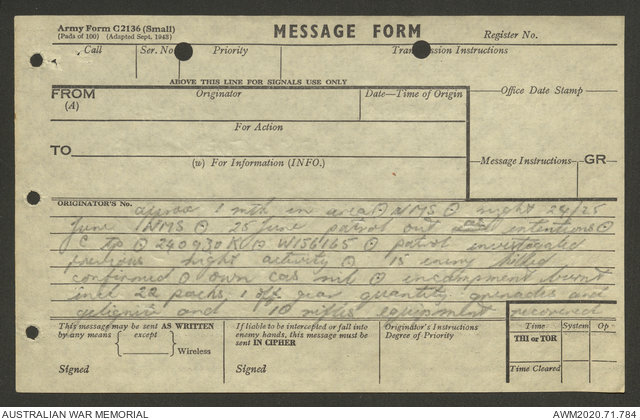 Army Form C2136 (Small)
(Pads of 100) (Adapted Sept. 1945)
MESSAGE FORM
Register No.
Call Ser. No. Priority Transmission Instructions
ABOVE THIS LINE FOR SIGNALS USE ONLY
FROM (A) Originator Date—Time of Origin Office Date Stamp
For Action
TO
(W) For Information (INFO.)
Message Instructions GR
ORIGINATOR'S No.
approx 1 mth in area ⊙ NMS ⊙ night 24/25
June NMS ⊙ 25 June patrol out intentions ⊙
C tp ⊙ 240930K ⊙ W156165 ⊙ patrol investigated
previous night activity ⊙ 15 enemy killed
confirmed ⊙ own cas nil ⊙ encampment burnt
incl 22 packs, 1 offr gear quantity grenades and
gelignite and 10 rifles equipment recovered
This message may be sent AS WRITTEN
by any means except
Wireless
Signed
If liable to be intercepted or fall into
enemy hands, this message must be
sent IN CIPHER
Signed
Originator's Instructions
Degree of Priority
Time System Op
THI or TOR
Time Cleared
AUSTRALIAN WAR MEMORIAL
AWM2020.71.784